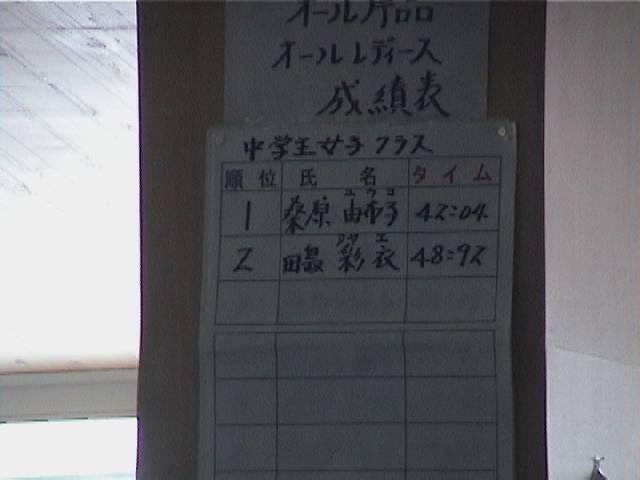 オール片品
オールレディース
成績表
中学生女子クラス
順位 氏名 タイム
ユウコ
1 桑原 由布子 42:04
サエ
2 田島 彩衣 48:92